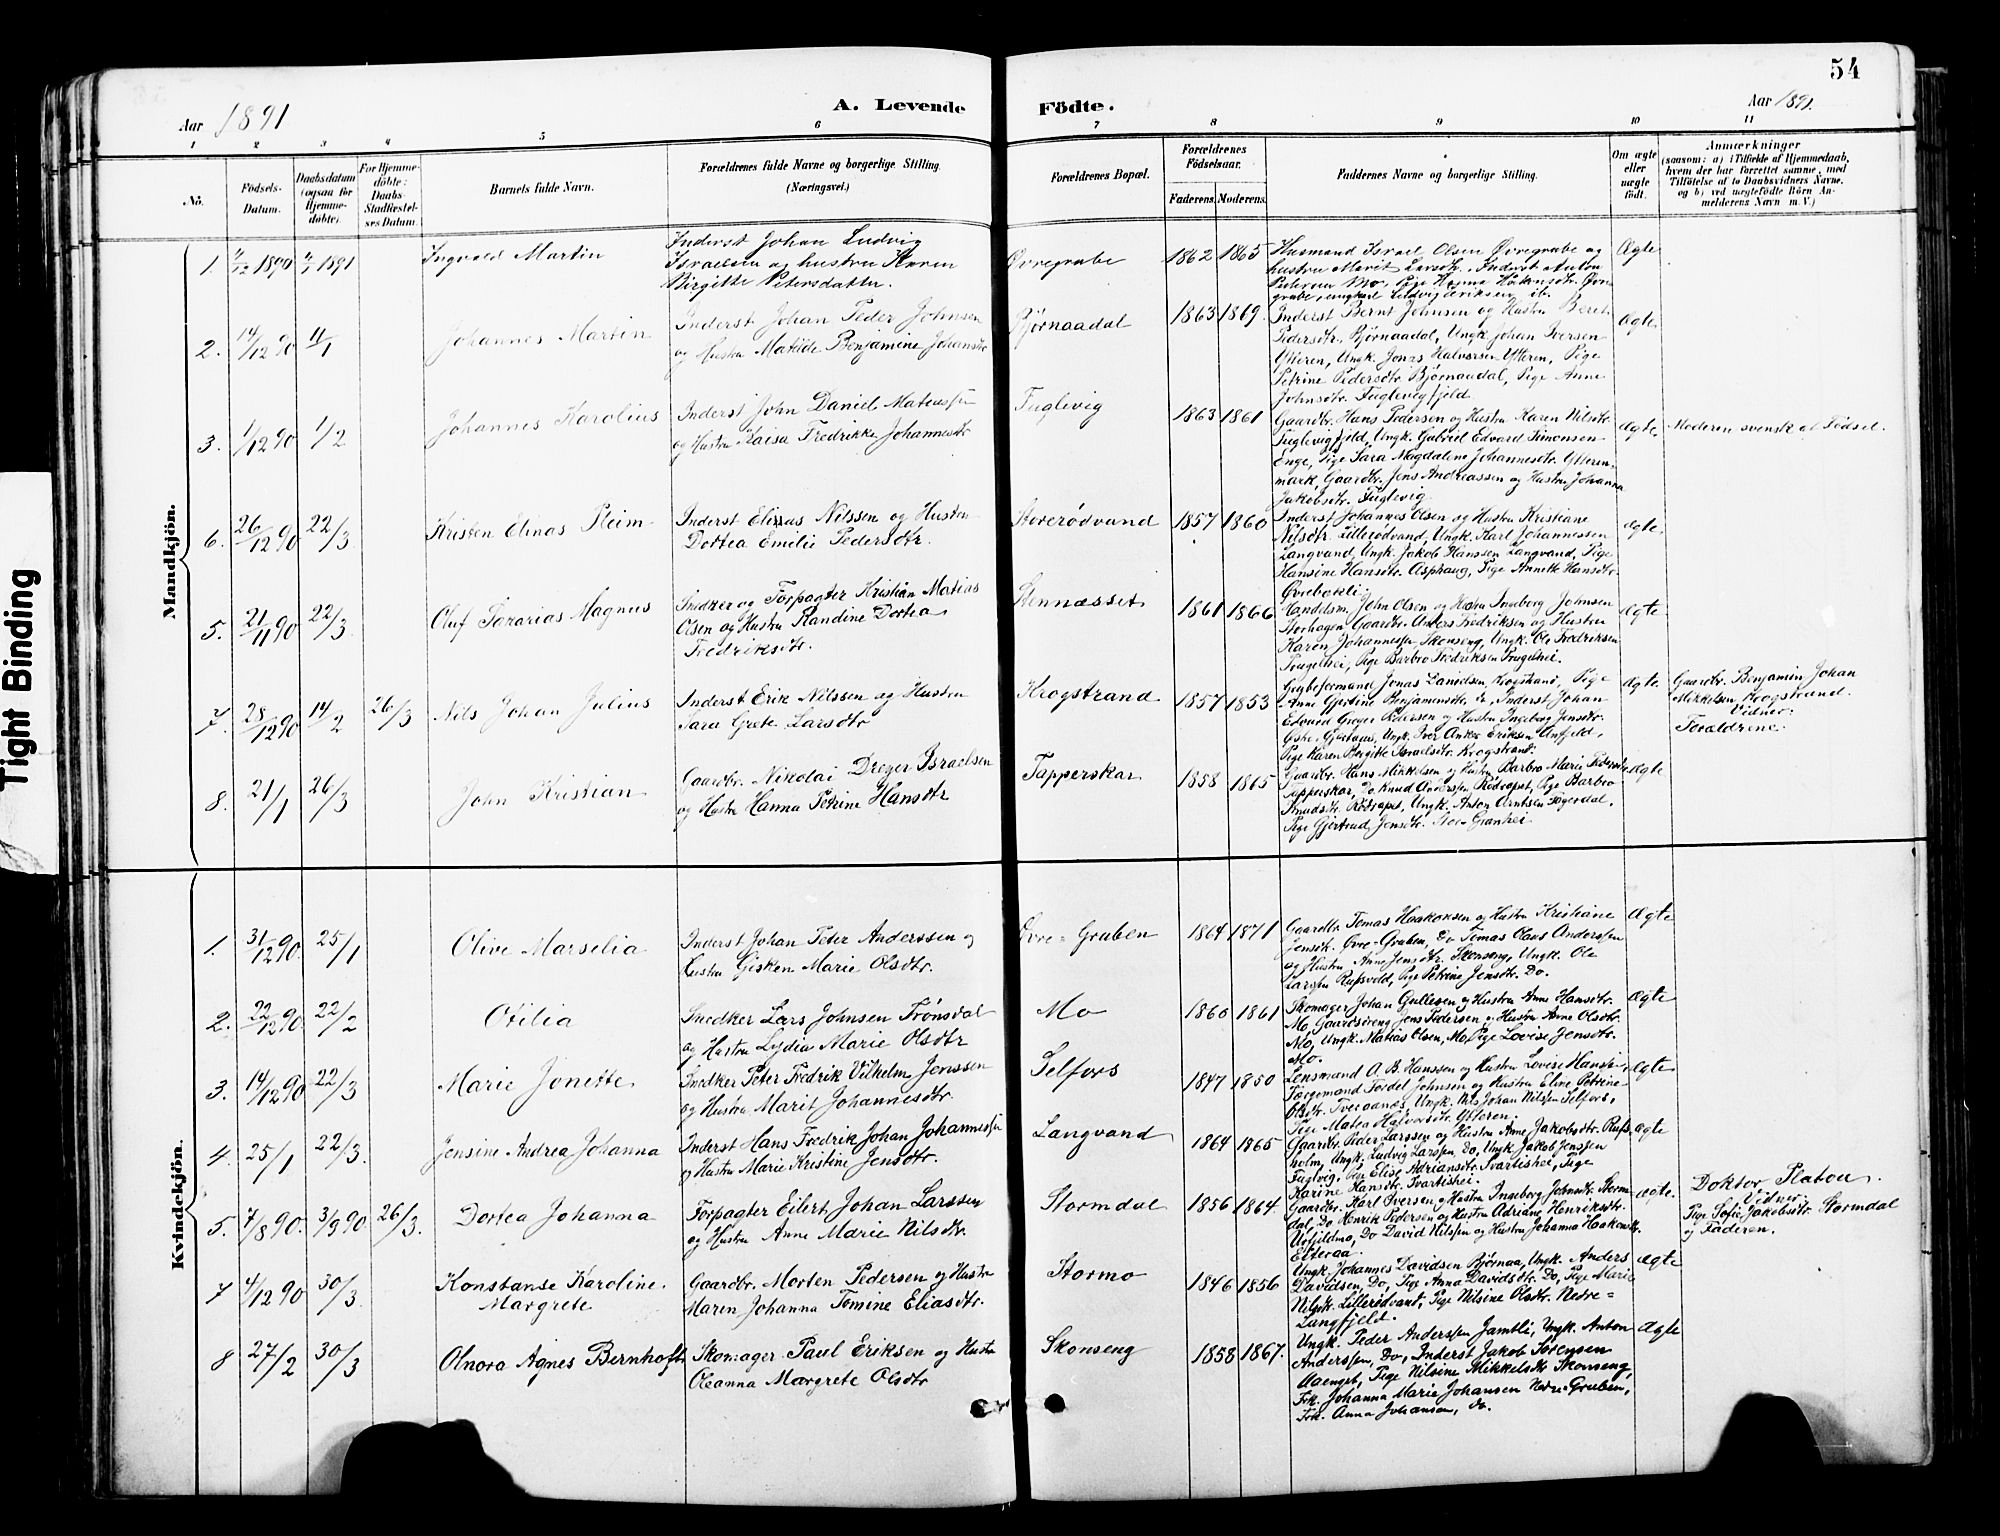 54
Aar 1891
A. Levende
Födte.
Aar 1891.
1 2 3 4 5 6 7 8 9 10 11
No.
Födsels-Datum.
Daabsdatum (ogsaa for Hjemme-döbte).
For Hjemme-döbte: Daabs-Stadfæstel-ses Datum.
Barnets fulde Navn.
Forældrenes fulde Navne og borgerlige Stilling.
(Næringsvei.)
Forældrenes Bopæl.
Forældrenes Födselsaar.
Faderens. Moderens.
Faddernes Navne og borgerlige Stilling.
Om ægte eller uægte födt.
Anmærkninger
(saasom: a) i Tilfælde af Hjemmedaab,
hvem der har forrettet samme, med
Tilföielse af to Daabsvidners Navne,
og b) ved uægtefödte Börn An-
melderens Navn m. V.)
Tight Binding
Mandkjön.
1. 1890 1891 Ingvald Martin
Inderst Johan Ludvig
Israelsen og hustru Karen
Birgitte Petersdatter
Øvregrube 1862 1865
Husmand Israel Olsen Øvregrube og
hustru Marit Larsdtr. Inderst Anton
Pedersen Mo, Pige Hanna Håkonsdtr. Øvre
grube, ungkarl Ludvig Eriksen
Ægte
2. 14/12 90 11/1 Johannes Martin
Inderst Johan Peder Johnsen
og Hustru Matilde Benjamine Johansdtr
Bjørnaadal 1863 1869.
Inderst Bernt Johnsen og Hustru Beret
Pedersdtr. Bjørnaadal, Ungk. Johan Iversen
Ytteren, Ungk. Jonas Halvorsen Ytteren, Pige
Petrine Pedersdtr. Bjørnaadal, Pige Anne
Johnsdtr. Fuglevigfjeld
Ægte
3. 1/12 90 1/2 Johannes Karolius
Inderst John Daniel Mateussen
og Hustru Kaisa Fredrikke Johannesdtr
Fuglevig 1863 1861
Gaardbr. Hans Pedersen og Hustru Karen Nilsdtr.
Fuglevigfjeld, Ungk. Gabriel Edvard Simonsen
Enge, Pige Sara Magdaline Johannesdtr. Ytteren-
mark, Gaardbr. Jens Andreassen og Hustru Johanna
Jakobsdtr. Fuglevig
Ægte. Moderen svensk af Fødsel.
6. 26/12 90 22/3 Kristen Elinas Pleim
Inderst Elinas Nilssen og Hustru
Dortea Emilie Pedersdtr.
Storerødvand 1857 1860
Inderst Johannes Olsen og Hustru Kristiane
Nilsdtr. Lillerødvand, Ungk. Karl Johannessen
Langvand, Ungk. Jakob Hanssen Langvand, Pige
Hansine Hansdtr. Asphaug, Pige Annette Hansdtr.
Øvrebakli
Ægte.
5. 21/11 90 22/3 Oluf Sakarias Magnus
Snedker og Forpagter Kristian Matias
Olsen og Hustru Randine Dortea
Fredriksdtr.
Stennæsset 1861 1866
Handelsm. John Olsen og Hustru Ingeborg Johnsen
Storhagen Gaardbr. Anders Fredriksen og Hustru
Karen Johannessen, Skonseng, Ungk. Ole Fredriksen
Trugelhei, Pige Barbro Fredriksen Trugelhei.
Ægte
7. 28/12 90 14/2 26/3 Nils Johan Julius
Inderst Erik Nilssen og Hustru
Sara Grete Larsdtr
Krogstrand 1857 1853
Grubeformand Jonas Danielsen Krogstrand, Pige
Anne Gjertine Benjaminsdtr. do, Inderst Johan
Edvard Greger Pedersen og Hustru Ingeborg Jensdtr.
Ungk. Iver Anker Eriksen Umfjeld,
Pige Karen Bergitte Israelsdtr. Krogstrand.
Ægte.
Gaardbr. Benjamin Johan
Mikkelsen Krogstrand.
Vidner:
Forældrene.
8. 21/1 26/3 John Kristian
Gaardbr. Nikolai Dreyer Israelsen
og Hustru Hanna Petrine Hansdtr
Tapperskar 1858 1865
Gaardbr. Hans Mikkelsen og Hustru Barbro Marie Pedersdtr
Tapperskar, Do Knud Anderssen Rödrapet, Pige Barbro
Knudsdtr. Rödrapet, Ungk. Anton Arntsen Fagerdal,
Pige Gjertrud Jensdtr. Granhei
Ægte
Kvindekjön.
1. 31/12 90. 25/1 Olive Marselia
Inderst Johan Peter Anderssen og
Hustru Gisken Marie Olsdtr.
Øvre-Gruben 1864 1871
Gaardbr Tomas Haakonsen og Hustru Kristiane
Jensdtr. Øvre-Gruben, Do Tomas Olaus Anderssen
og Hustru Anne Jensdtr. Skonseng, Ungk. Ole
Larssen Rufsvold, Pige Petrine Jensdtr. Do.
Ægte
2. 22/12 90. 22/2 Otilia
Snedker Lars Johnsen Trønsdal
og Hustru Lydia Marie Olsdtr
Mo 1860 1861
Skomager Johan Gullesen og Hustru Anne Hansdtr.
Mo, Gaardsdreng Jens Pedersen og Hustru Anne Olsdtr.
Mo, Ungk. Matias Olsen, Mo, Pige Lovise Jensdtr.
Mo.
Ægte
3. 14/12 90 22/3 Marie Jonette
Snedker Peter Fredrik Vilhelm Jenssen
og Hustru Marit Johannesdtr.
Selfors 1847 1850
Lensmand A. B. Hanssen og Hustru Lovise Hanssen,
Færgemand Tordel Johnsen og Hustru Eline Petrine
Olsdtr. Tveraanæs, Ungk. Nils Johan Nilssen Selfors,
Pige Matea Halvorsdtr. Ytteren.
Ægte
4. 25/1 22/3. Jensine Andrea Johanna
Inderst Hans Fredrik Johan Johannessen
og Hustru Marie Kristine Jensdtr.
Langvand 1864 1865
Gaardbr. Peder Larssen og Hustru Anne Jakobsdtr. Rufs-
holm, Ungk. Ludvig Larssen, Do, Ungk. Jakob Jenssen
Fuglvig, Pige Elise Adriansdtr. Svartishei, Pige
Karine Hansdtr. Svartishei.
Ægte
5. 7/8 90. 3/9 90 26/3. Dortea Johanna
Forpagter Eilert Johan Larssen
og Hustru Anne Marie Nilsdtr.
Stormdal 1856 1864
Gaardbr. Karl Iversen og Hustru Ingeborg Johnsdtr. Storm-
dal, Do Henrik Pedersen og Hustru Adriane Henriksdtr.
Urfjeldmo, Do David Nilssen og Hustru Johanna Haakonsdtr.
Eiteraa.
Ægte.
Doktor Platou.
Vidner:
Pige Sofie Jakobsdtr. Stormdal
og Faderen.
7 4/12 90 30/3. Konstanse Karoline
Margrete
Gaardbr. Morten Pedersen og Hustru
Maren Johanna Tomine Eliasdtr.
Stormo 1846 1856
Ungk. Johannes Davidsen Bjørnaa, Ungk. Anders
Davidsen, Do, Pige Anna Davidsdtr. Do, Pige Marie
Nilsdtr. Lillerødvand, Pige Nilsine Olsdtr. Nedre-
Langfjeld.
Ægte
8 27/2 30/3 Olnora Agnes Bernhoft
Skomager Paul Eriksen og Hustru
Oleanna Margrete Olsdtr
Skonseng 1858 1867.
Ungk. Peder Anderssen Jamtli, Ungk. Anton
Anderssen, Do, Inderst Jakob Sørensen
Aaenget, Pige Nilsine Mikkelsdtr Skonseng,
Frk. Johanna Marie Johansen Nedre-Gruben,
Frk. Anna Johansen, do.
Ægte